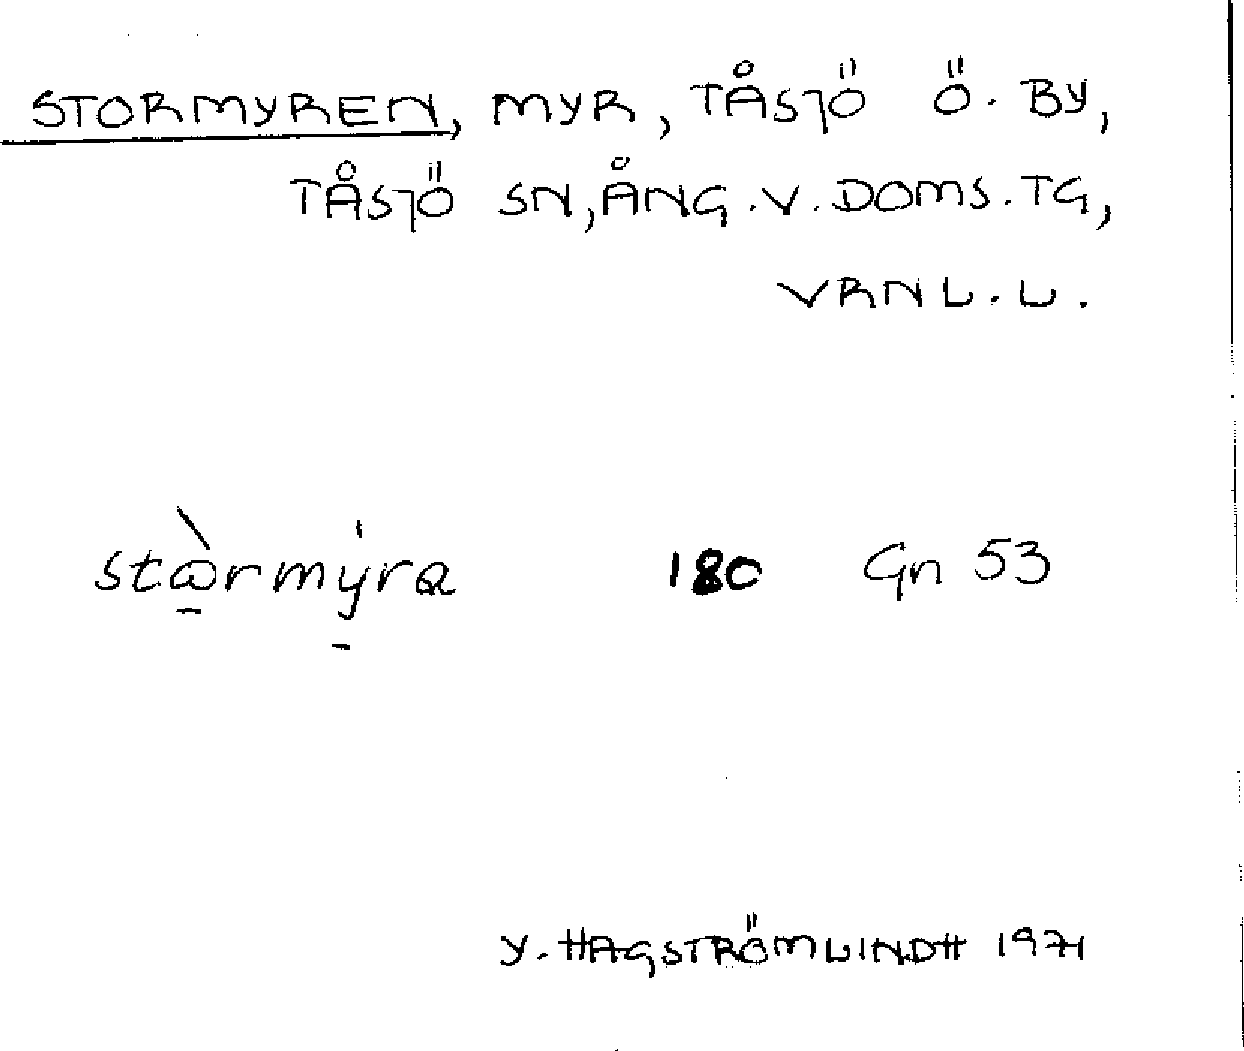 STORMYREN, MYR, TÅSJÖ Ö. BY,
TÅSJÖ SN, ÅNG. V. DOMS. TG,
VRNL. L.
stòrmýra 180 Gn 53
Y. HAGSTRÖMLINDH 1971